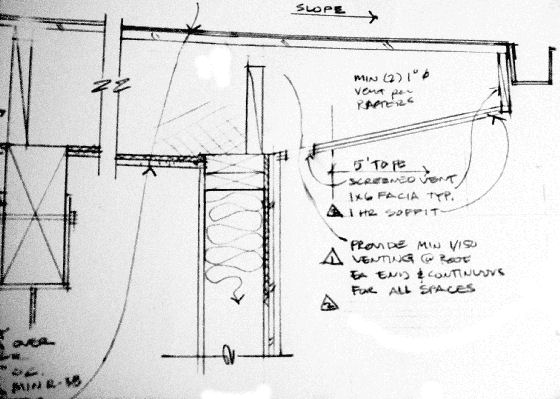 SLOPE
MIN (2) 1" Ø
VENT per
RAFTERS
5' TO PL
SCREENED VENT
1X6 FACIA TYP.
1 HR SOFFIT
1
PROVIDE MIN 1/150
VENTING @ ROOF
EA END & CONTINUOUS
FOR ALL SPACES
2
OVER
O.C.
MIN R-38